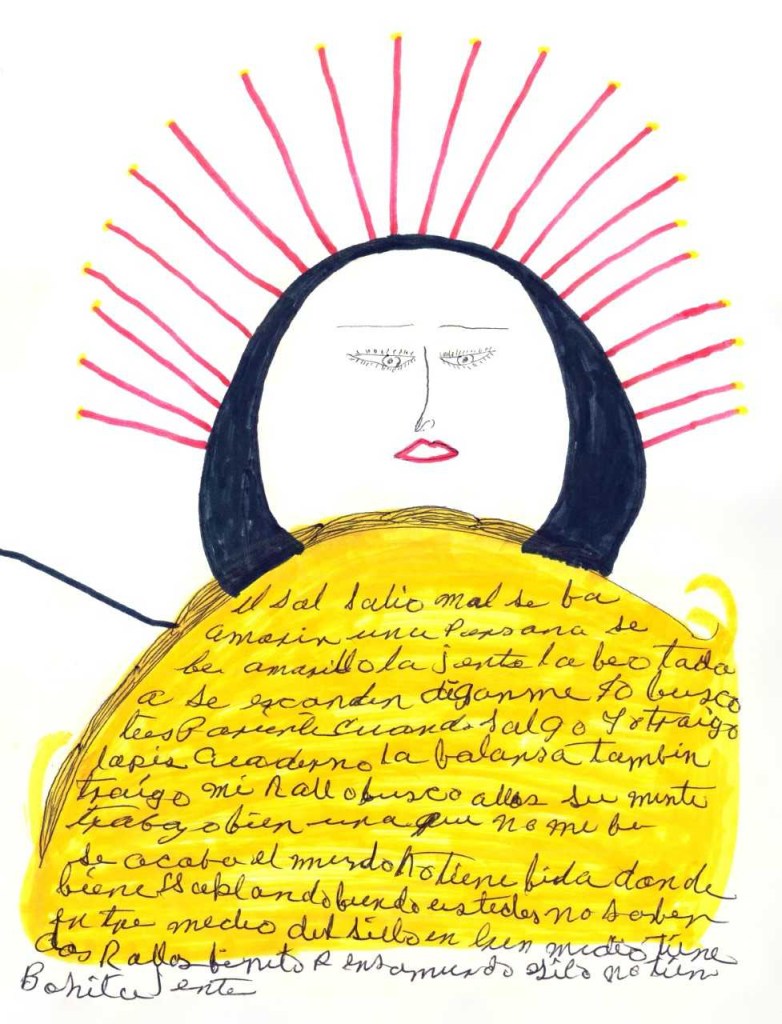 el sol salio mal se ba
amorir una Persona se
be amarillo la jente la beo toda
a se esconden diganme Yo busco
Pariente cuando salgo Y traigo
lapis Cuaderno la balansa tambin
traigo mi Rallo busco allos su mente
trabajo bien una que no me be
se acaba el mundo No tiene bida donde
biene Soplando biendo ustedes no saben
En tre medio del sillo en buen medio tiene
dos Rallos benito R ensamundo no tien
Bonita jente